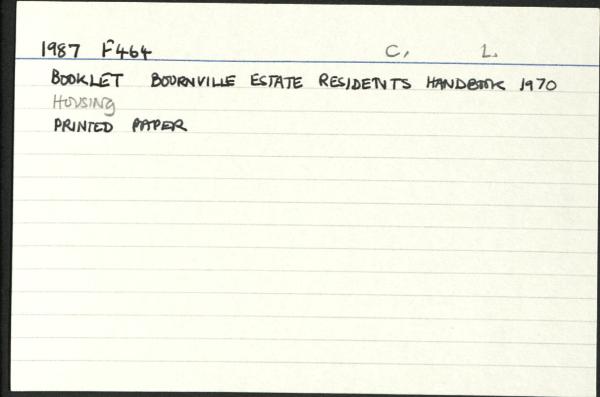 1987 F464 C, L.
BOOKLET BOURNVILLE ESTATE RESIDENTS HANDBOOK 1970
HOUSING
PRINTED PAPER